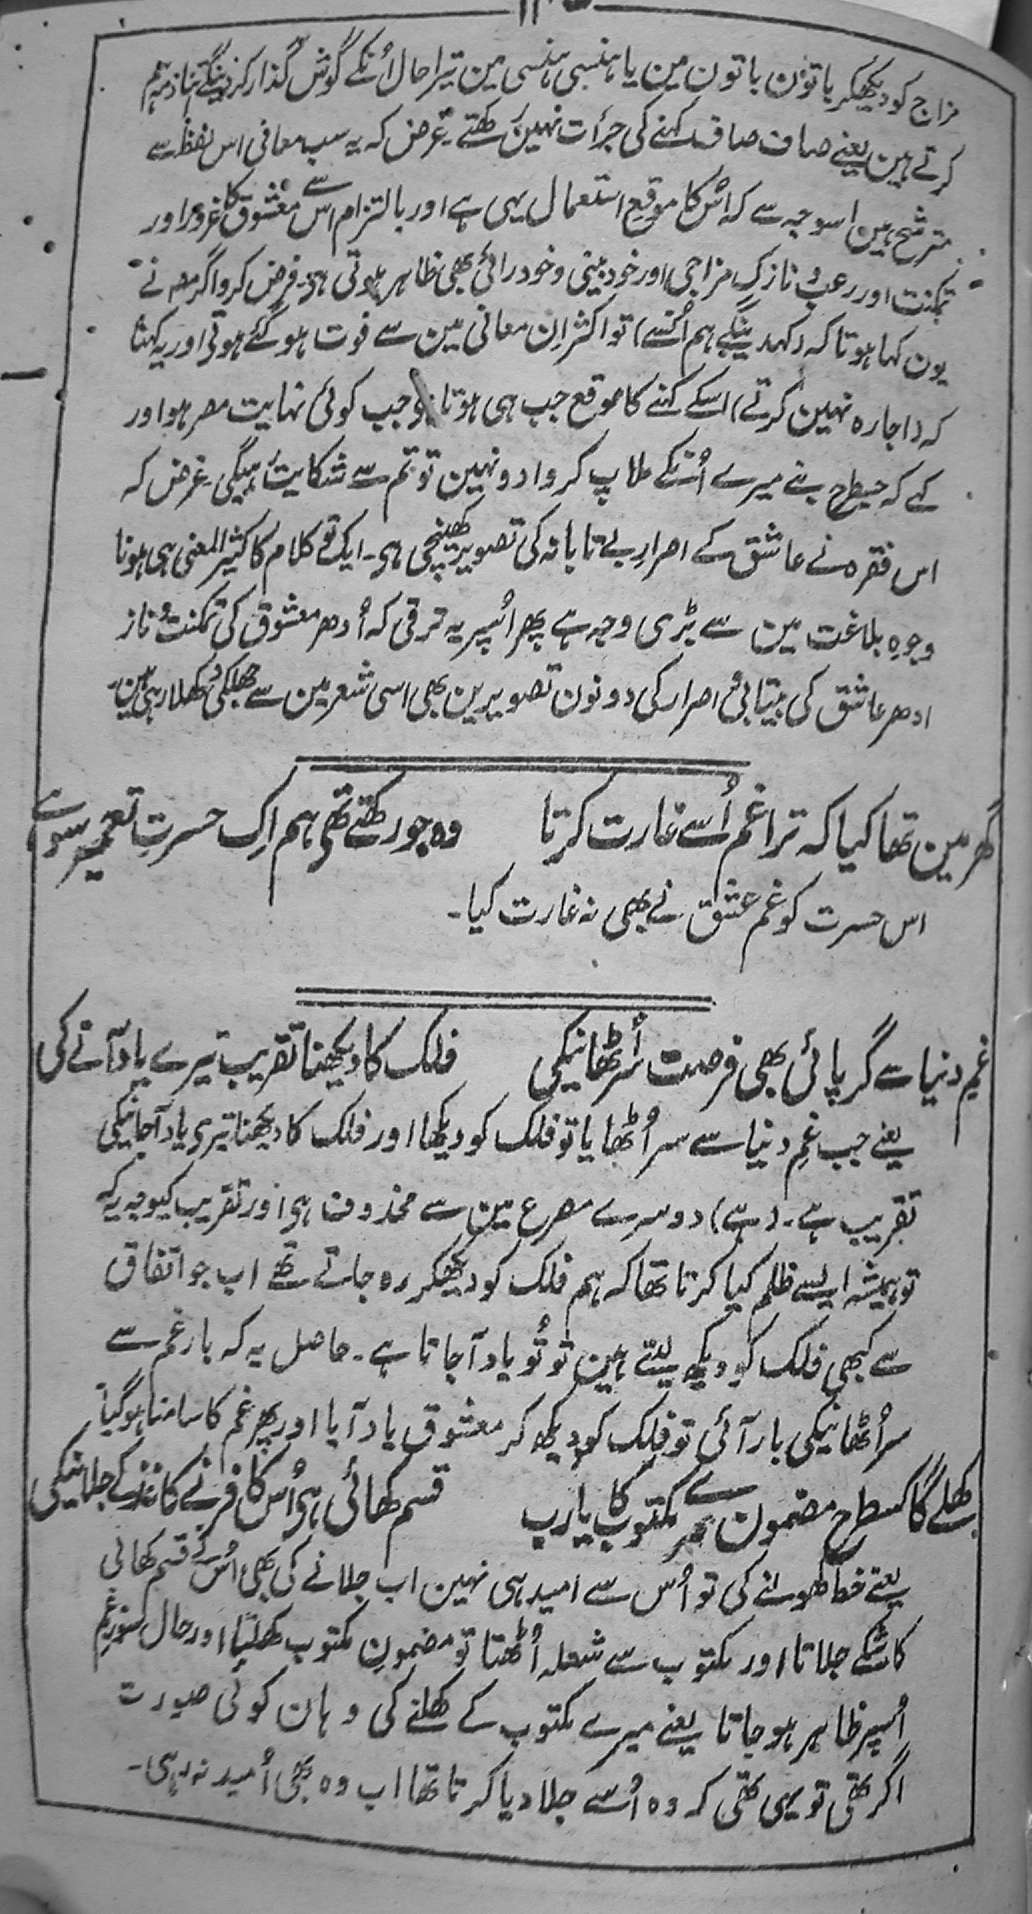 مزاج کو دیکھکر باتون باتون مین یا ہنسی ہنسی مین تیرا حال اُنکے گوش گذار کر دینگے اتنا ذمہ ہم
کرتے ہین یعنے صاف صاف کہنے کی جرأت نہین رکھتے ۔ غرض کہ یہ سب معانی اس لفظ سے
مترشح ہین اسوجہ سے کہ اُسکا موقع استعمال یہی ہے اور بالتزام اس سے معشوق کا غرور اور
تمکنت اور رعب و نازک مزاجی اور خود بینی و خود رائی بھی ظاہر ہوتی ہی ۔ فرض کرو اگر مصنف نے
یون کہا ہوتا کہ (کہدینگے ہم اُنسے) تو اکثر ان معانی مین سے فوت ہو گئے ہوتے اور یہ کہنا
کہ (اجارہ نہین کرتے) اسکے کہنے کا موقع جب ہی ہوتا ہی جب کوئی نہایت مصر ہو اور
کہے کہ جسطرح بنے میرے اُنکے ملاپ کروا دو نہین تو تم سے شکایت رہیگی غرض کہ
اس فقرہ نے عاشق کے اصرارِ بے تابانہ کی تصویر کھینچی ہی ۔ ایک تو کلام کا کثیر المعنی ہی ہونا
وجوہِ بلاغت مین سے بڑی وجہ ہے پھر اُسپر یہ ترقی کہ اُدھر معشوق کی تمکنت و ناز
ادھر عاشق کی بیتابی و اصرار کی دونون تصویرین بھی اسی شعر مین سے جھلکی دکھلا رہی ہین ۔
گھر مین تھا کیا کہ ترا غم اُسے غارت کرتا وہ جو رکھتے تھی ہم اِک حسرتِ تعمیر سو ہے
اس حسرت کو غم عشق نے بھی نہ غارت کیا ۔
غمِ دنیا سے گر پائی بھی فرصت سر اُٹھانیکی فلک کا دیکھنا تقریب تیرے یاد آنے کی
یعنے جب غمِ دنیا سے سر اُٹھایا تو فلک کو دیکھا اور فلک کا دیکھنا تیری یاد آجانیکی
تقریب ہے ۔ (ہے) دوسرے مصرع مین سے محذوف ہی اور تقریب کیوجہ یہ کہ
تو ہمیشہ ایسے ظلم کیا کرتا تھا کہ ہم فلک کو دیکھکر رہ جاتے تھے اب جو اتفاق
سے کبھی فلک کو دیکھ لیتے ہین تو تُو یاد آجاتا ہے ۔ حاصل یہ کہ بارِ غم سے
سر اُٹھانیکی بار آئی تو فلک کو دیکھ کر معشوق یاد آیا اور پھر غم کا سامنا ہوگیا
کھلے گا کسطرح مضمون مرے مکتوب کا یارب قسم کھائی ہی اُس کافر نے کاغذ کے جلانیکی
یعنے خط کھولنے کی تو اُس سے امید ہی نہین اب جلانے کی بھی اُس نے قسم کھائی
کاشکے جلاتا اور مکتوب سے شعلہ اُٹھتا تو مضمونِ مکتوب کھلتا اور حال سوزِ غم
اُسپر ظاہر ہو جاتا یعنے میرے مکتوب کے کھلنے کی وہان کوئی صورت
اگر تھی تو یہی تھی کہ وہ اُسے جلا دیا کرتا تھا اب وہ بھی اُمید نہ رہی ۔